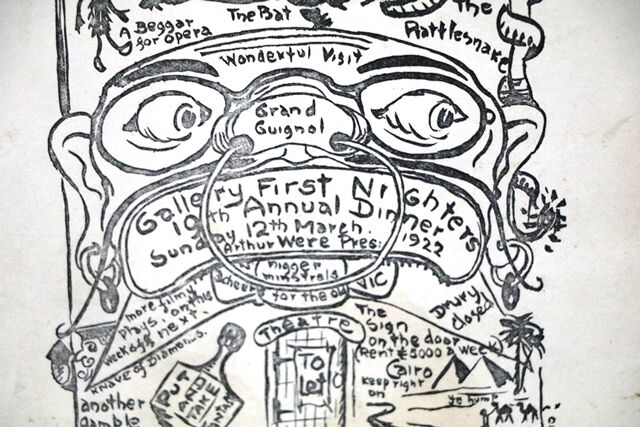 A Beggar
for Opera
The Bat
The
Rattlesnake
Wonderful Visit
Grand
Guignol
Gallery First Nighters
19th Annual Dinner
Sunday 12th March 1922
Arthur Were Pres:
nigger
minstrels
Cheers for the old VIC
more filmy
plays on this
week off next
Knave of Diamonds.
Drury
closed
Theatre
To
Let
The
Sign
on the door
(Rent £5000 a week)
Cairo
keep right
on
ye hump
PUT
AND
TAKE
another
gamble